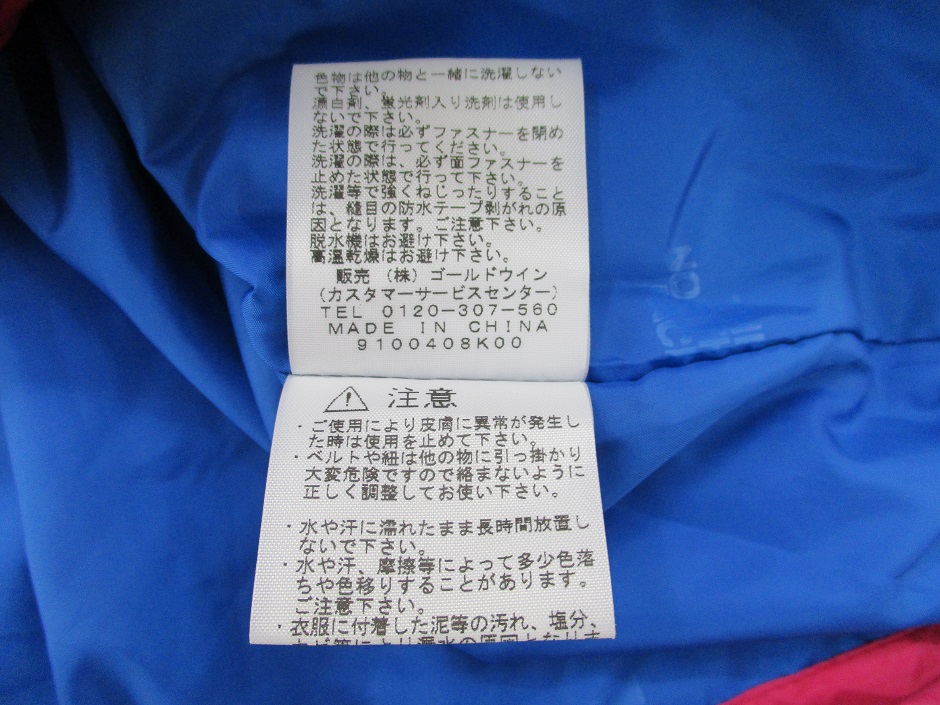 色物は他の物と一緒に洗濯しない
で下さい。
漂白剤、蛍光剤入り洗剤は使用し
ないで下さい。
洗濯の際は必ずファスナーを閉め
た状態で行ってください。
洗濯の際は、必ず面ファスナーを
止めた状態で行って下さい。
洗濯等で強くねじったりすること
は、縫目の防水テープ剥がれの原
因となります。ご注意下さい。
脱水機はお避け下さい。
高温乾燥はお避け下さい。
販売 （株）ゴールドウイン
（カスタマーサービスセンター）
TEL 0120-307-560
MADE IN CHINA
9100408K00
注意
・ご使用により皮膚に異常が発生し
た時は使用を止めて下さい。
・ベルトや紐は他の物に引っ掛かり
大変危険ですので絡まないように
正しく調整してお使い下さい。
・水や汗に濡れたまま長時間放置し
ないで下さい。
・水や汗、摩擦等によって多少色落
ちや色移りすることがあります。
ご注意下さい。
・衣服に付着した泥等の汚れ、塩分、
カビ等により漏水の原因となりま